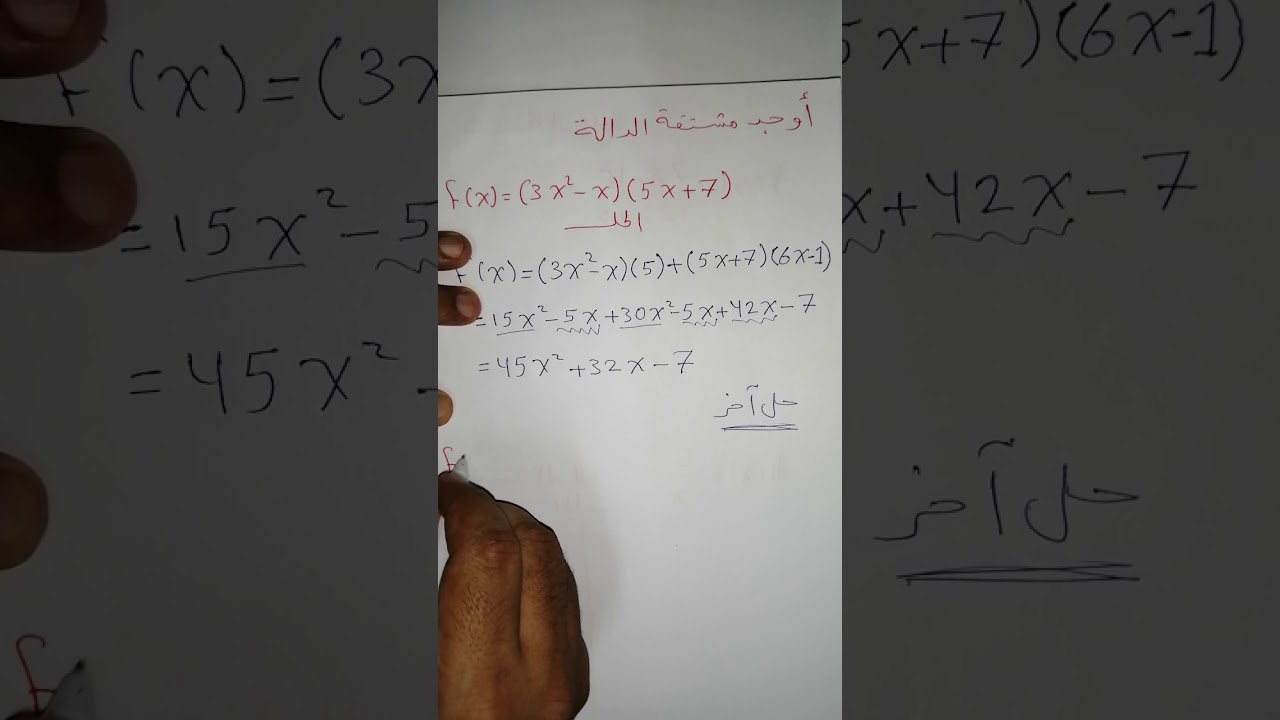 أوجد مشتقة الدالة
f(x)=(3x²-x)(5x+7)
الحل
f(x)=(3x²-x)(5)+(5x+7)(6x-1)
=15x²-5x+30x²-5x+42x-7
=45x²+32x-7
حل آخر
f